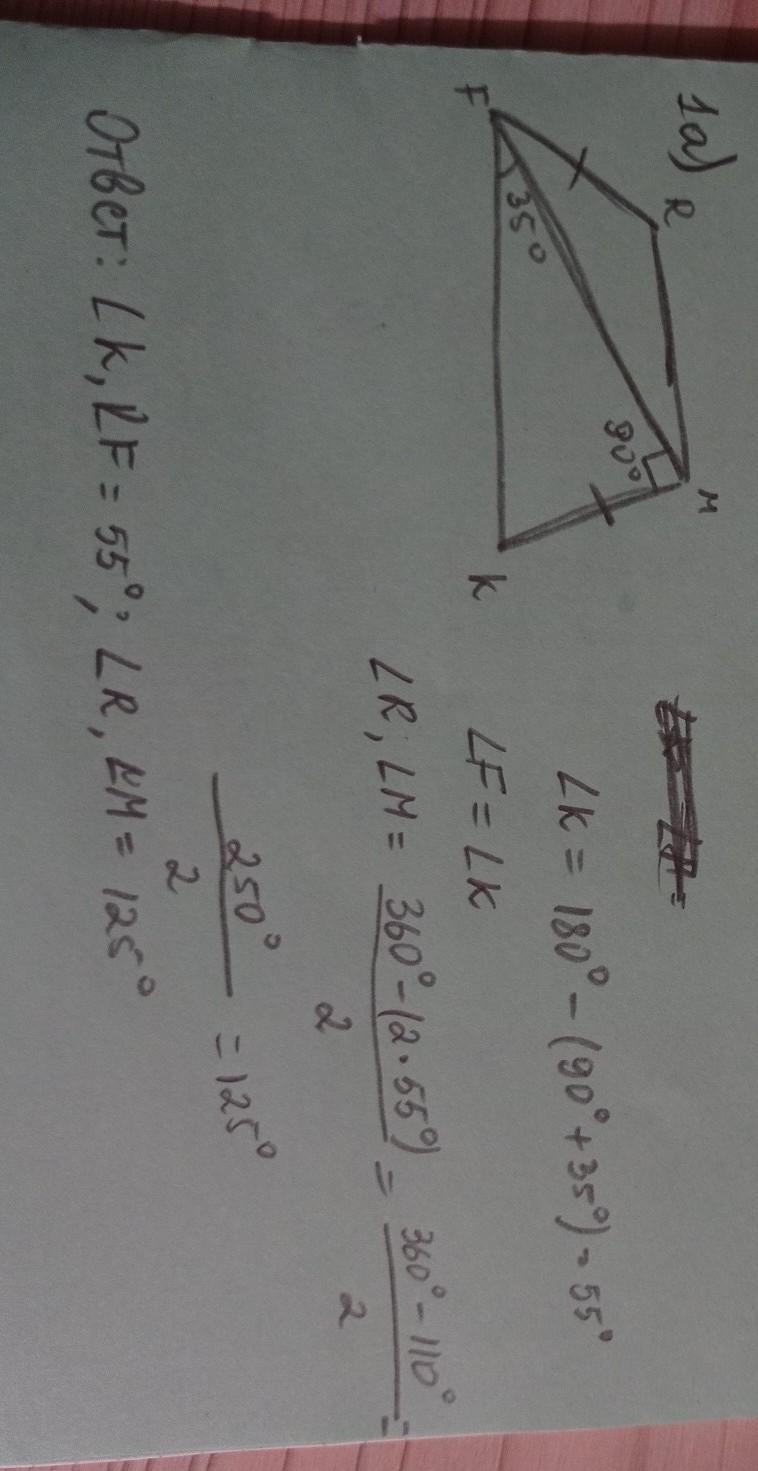 1а)
R
M
F
35°
90°
K
∠K = 180° - (90° + 35°) = 55°
∠F = ∠K
∠R; ∠M = \frac{360° - (2 · 55°)}{2} = \frac{360° - 110°}{2} =
\frac{250°}{2} = 125°
Ответ: ∠K, ∠F = 55°; ∠R, ∠M = 125°